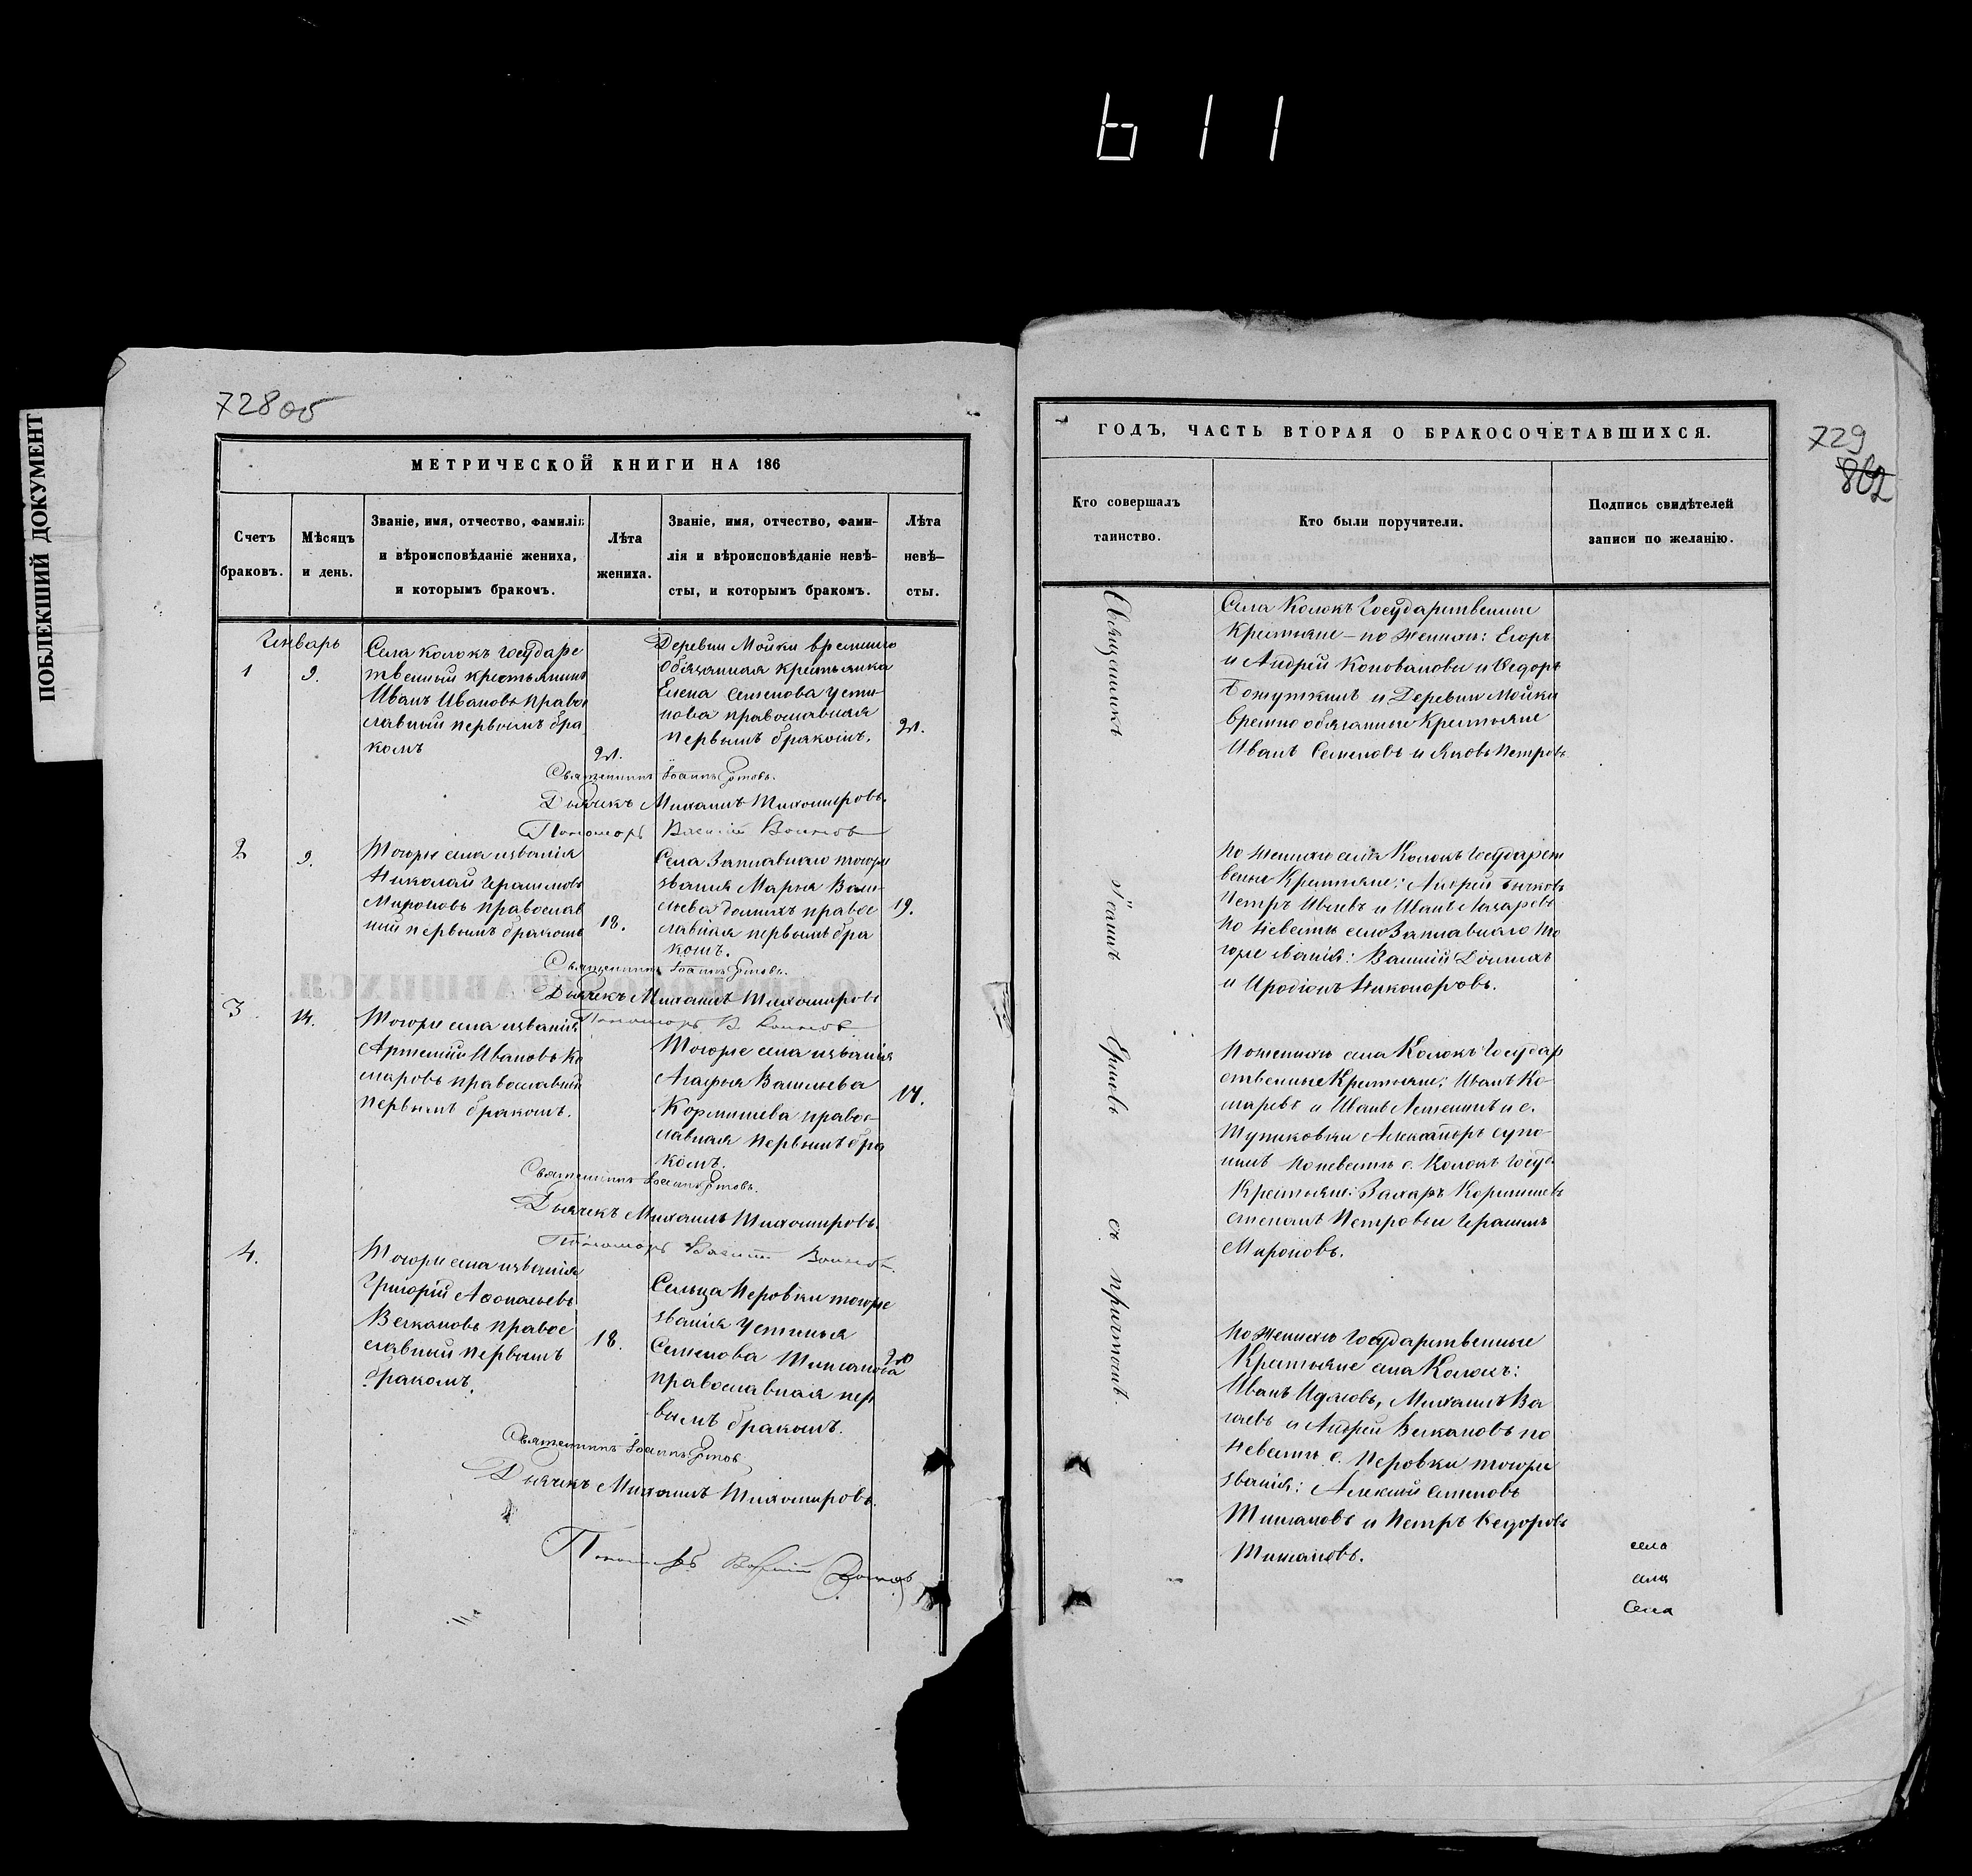 611
ПОБЛЕКШИЙ ДОКУМЕНТ
728об
МЕТРИЧЕСКОЙ КНИГИ НА 186
Счетъ
браковъ.
Мѣсяцъ
и день.
Званіе, имя, отчество, фамилія
и вѣроисповѣданіе жениха,
и которымъ бракомъ.
Лѣта
жениха.
Званіе, имя, отчество, фами-
лія и вѣроисповѣданіе невѣ-
сты, и которымъ бракомъ.
Лѣта
невѣ-
сты.
Генварь
1
9.
Села Колокъ государс
твенный крестьянинъ
Иванъ Ивановъ право
славный первымъ бра
комъ
21.
Деревни Мойки временно
обязанная крестьянка
Елена Семенова Усти-
нова православная
первымъ бракомъ.
21.
Священникъ Іоаннъ
Дьячекъ Михаилъ Тихомировъ.
Пономорь Василій
2
9.
Тогоже села и званія
Николай Герасимовъ
Мироновъ православ
ный первымъ бракомъ
18.
Села Заплавнаго тогоже
званія Марья Васи-
льева Долихъ правос
лавная первымъ бра
комъ.
19.
Священникъ Іоаннъ
Дьячекъ Михаилъ Тихомировъ
Пономорь В.
3
14.
Тогоже села и званія
Артемій Ивановъ Ко
маровъ православный
первымъ бракомъ.
Тогоже села и званія
Агафья Васильева
Кормишева правос-
лавная первымъ бра
комъ.
17.
Священникъ Іоаннъ
Дьячекъ Михаилъ Тихомировъ.
Пономорь Василій
4.
Тогоже села и званія
Григорій Афонасьевъ
Велкановъ правос
лавный первымъ
бракомъ.
18.
Сельца Перовки тогоже
званія Устинья
Семенова
православная пер
вымъ бракомъ.
20
Священникъ Іоаннъ
Дьячекъ Михаилъ Тихомировъ.
Пономарь Василій
ГОДЪ, ЧАСТЬ ВТОРАЯ О БРАКОСОЧЕТАВШИХСЯ.
729
802
Кто совершалъ
таинство.
Кто были поручители.
Подпись свидѣтелей
записи по желанію.
Священникъ Іоаннъ Ермовъ съ причтомъ.
Села Колокъ Государственные
Крестьяне – по женихи: Егоръ
и Андрей Коноваловы и Ѳедоръ
и Деревни Мойки
временно обязанные Крестьяне
Иванъ Семеновъ и Яковъ Петровъ
По жениху села Колокъ Государст
венные Крестьяне: Андрей Бычковъ
Петръ и Иванъ Лазаревъ
По невестѣ село Заплавнаго то
гоже званія: Василій Долихъ
и Иродіонъ Никоноровъ.
По жениху села Колокъ Государ
ственные Крестьяне: Иванъ Ко
маревъ и Иванъ и с.
Александръ
по невестѣ с. Колокъ Госуд.
Крестьяне: Захаръ Кормишевъ
Степанъ Петровъ и Герасимъ
Мироновъ.
По жениху Государственные
Крестьяне села Колокъ:
Иванъ Михаилъ Ва
и Андрей Велкановъ по
невестѣ с. Перовки тогоже
званія: Алексей Семеновъ
и Петръ Ѳедоровъ
села
села
Села